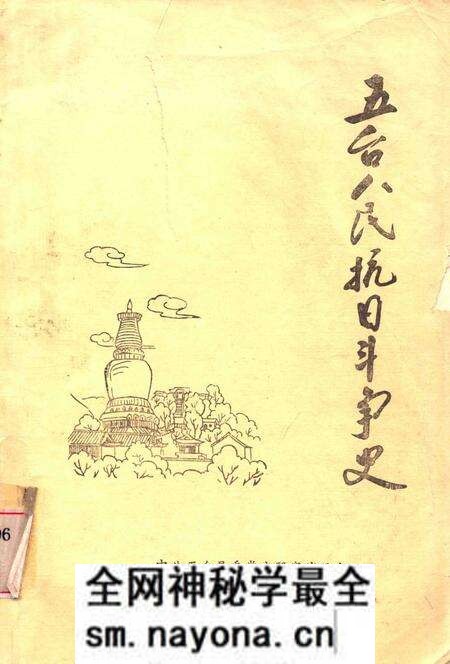 五台人民抗日斗争史
06
全网神秘学最全
sm.nayona.cn